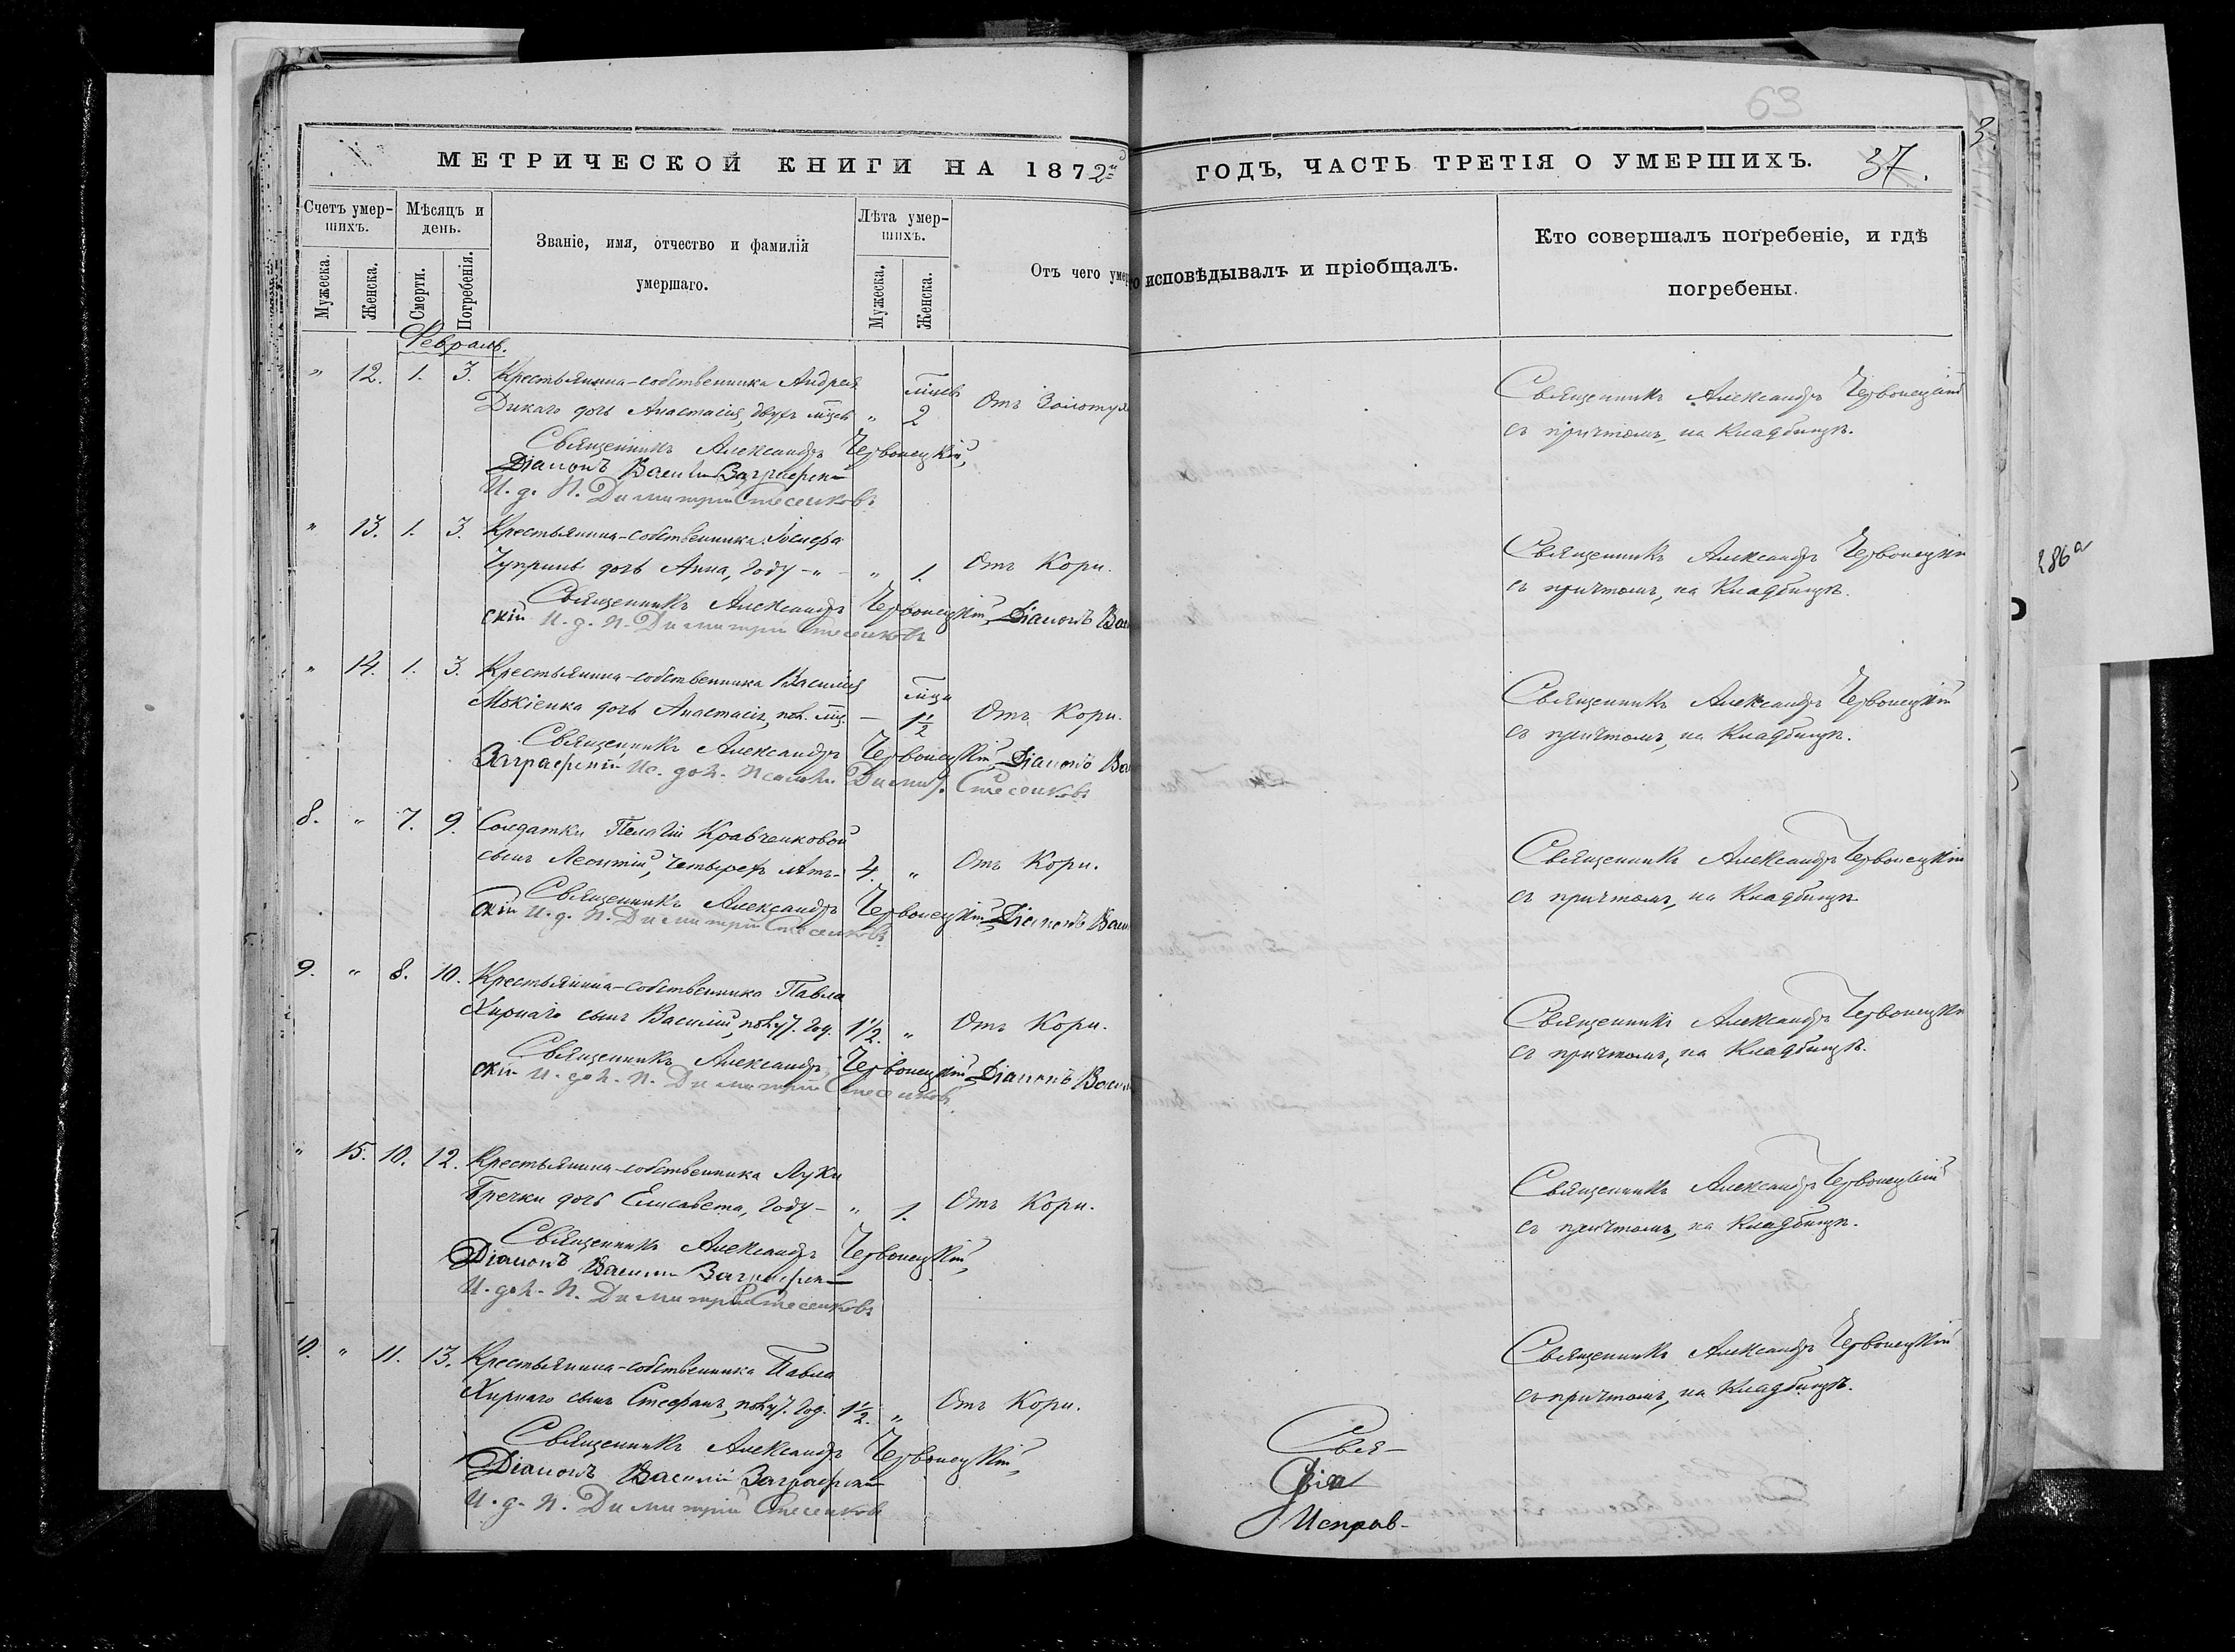 63
3
МЕТРИЧЕСКОЙ КНИГИ НА 1872й
ГОДЪ, ЧАСТЬ ТРЕТІЯ О УМЕРШИХЪ. 37.
Счетъ умер-
шихъ.
Мѣсяцъ и
день.
Званіе, имя, отчество и фамилія
умершаго.
Лѣта умер-
шихъ.
Мужеска.
Женска.
Смерти.
Погребенія.
Мужеска.
Женска.
Отъ чего умер
то исповѣдывалъ и пріобщалъ.
Кто совершалъ погребеніе, и гдѣ
погребены.
Февраль.
" 12. 1. 3. Крестьянина-собственника Андрея
Дикаго дочь Анастасія, двухъ мцев " мцев 2 Отъ Золотух
Священникъ Александръ Червонецкій,
Діаконъ Василій Заграфскій
И. д. П. Димитрій Стесенковъ
Священникъ Александръ Червонецкій
съ причтомъ, на Кладбищѣ.
" 13. 1. 3. Крестьянина-собственника Іосифа
Чуприны дочь Анна, году - " - " 1. Отъ Кори.
Священникъ Александръ Червонецкій, Діаконъ Вас
скій И. д. П. Димитрій Стесенковъ
Священникъ Александръ Червонецкій
съ причтомъ, на Кладбищѣ.
286а
" 14. 1. 3. Крестьянина-собственника Василія
Мокіенка дочь Анастасія, пол. мц. — мца 1½ Отъ Кори.
Священникъ Александръ Червонецкій, Діаконъ Ва
Заграфскій Ис. дол. Псалм. Димит. Стесенковъ
Священникъ Александръ Червонецкій
съ причтомъ, на Кладбищѣ.
8. " 7. 9. Солдатки Пелагіи Кравченковой
сынъ Леонтій, четырехъ лѣтъ- 4. " Отъ Кори.
Священникъ Александръ Червонецкій, Діаконъ Васи
скій И. д. П. Димитрій Стесенковъ
Священникъ Александръ Червонецкій
съ причтомъ, на Кладбищѣ.
9. " 8. 10. Крестьянина-собственника Павла
Хирнаго сынъ Василій, полут. год. 1½. " Отъ Кори.
Священникъ Александръ Червонецкій, Діаконъ Васи
скій И. дол. П. Димитрій Стесенковъ
Священникъ Александръ Червонецкій
съ причтомъ, на Кладбищѣ.
" 15. 10. 12. Крестьянина-собственника Луки
Гречки дочь Елисавета, году - " 1. Отъ Кори.
Священникъ Александръ Червонецкій,
Діаконъ Василій Заграфскій
И. дол. П. Димитрій Стесенковъ
Священникъ Александръ Червонецкій
съ причтомъ, на Кладбищѣ.
10. " 11. 13. Крестьянина-собственника Павла
Хирнаго сынъ Стефанъ, полут. год. 1½. " Отъ Кори.
Священникъ Александръ Червонецкій,
Діаконъ Василій Заграфскій
И. д. П. Димитрій Стесенковъ
Священникъ Александръ Червонецкій
съ причтомъ, на Кладбищѣ.
Свя-
Діа
Исправ-